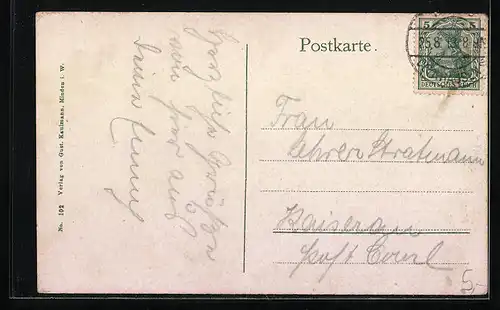 Herzliche Grüße
von hier aus
Deine
Postkarte.
5 5
DEUTSCHES REICH
Frau
Lehrer Stratmann
Kaiserau
Post Courl
5,-
No. 102 Verlag von Gust. Kaulmann, Minden i. W.